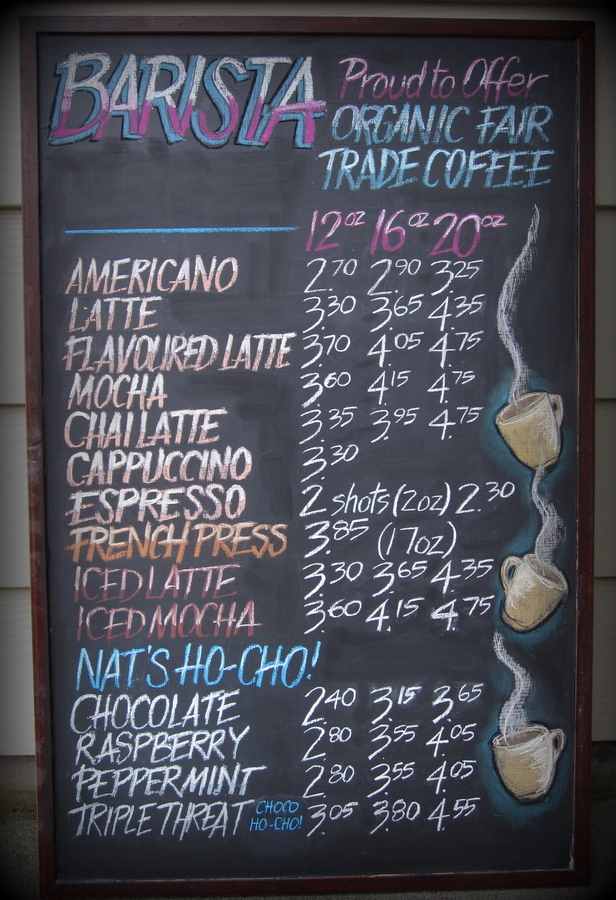 BARISTA Proud to Offer
ORGANIC FAIR
TRADE COFFEE
12oz 16oz 20oz
AMERICANO 2.70 2.90 3.25
LATTE 3.30 3.65 4.35
FLAVOURED LATTE 3.70 4.05 4.75
MOCHA 3.60 4.15 4.75
CHAI LATTE 3.35 3.95 4.75
CAPPUCCINO 3.30
ESPRESSO 2 shots (2oz) 2.30
FRENCH PRESS 3.85 (17oz)
ICED LATTE 3.30 3.65 4.35
ICED MOCHA 3.60 4.15 4.75
NAT'S HO-CHO!
CHOCOLATE 2.40 3.15 3.65
RASPBERRY 2.80 3.55 4.05
PEPPERMINT 2.80 3.55 4.05
TRIPLE THREAT CHOCO HO-CHO! 3.05 3.80 4.55